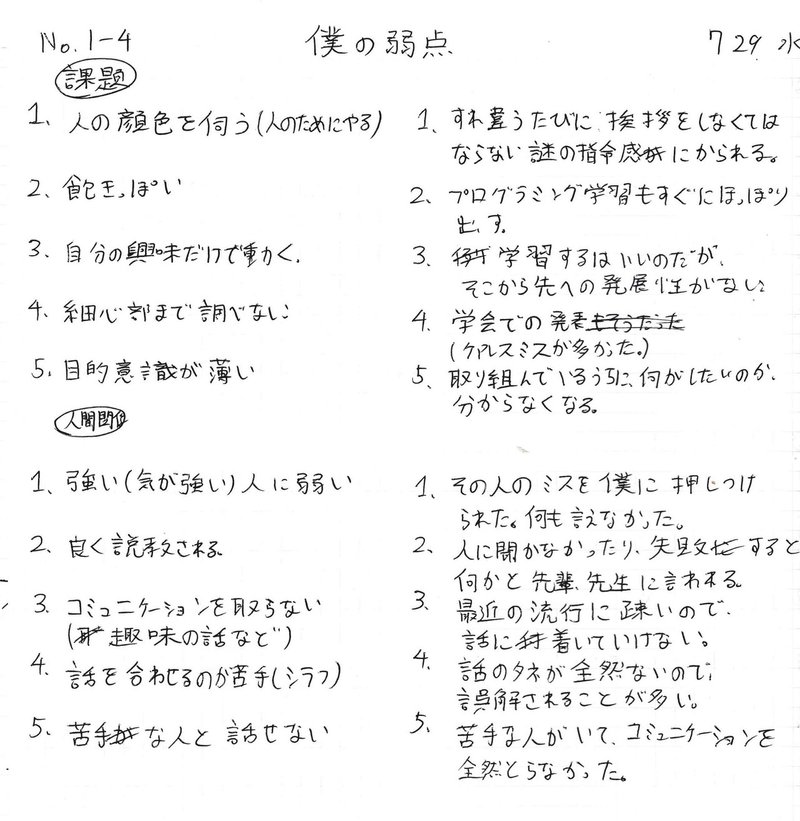 No.1-4 僕の弱点 7 29 水
課題
1、人の顔色を伺う(人のためにやる)
2、飽きっぽい
3、自分の興味だけで動かく、
4、細心部まで調べない
5、目的意識が薄い
1、すれ違うたびに、挨拶をしなくては
ならない謎の指令感にかられる。
2、プログラミング学習もすぐにほっぽり
出す。
3、学習するはいいのだが、
そこから先への発展性がない
4、学会での発表
(ケアレスミスが多かった。)
5、取り組んでいるうちに、何がしたいのか、
分からなくなる。
人間関係
1、強い(気が強い)人に弱い
2、良く説教される
3、コミュニケーションを取らない
(趣味の話など)
4、話を合わせるのが苦手(シラフ)
5、苦手な人と話せない
1、その人のミスを僕に押しつけ
られた。何も言えなかった。
2、人に聞かなかったり、失敗すると
何かと先輩、先生に言われる
3、最近の流行に疎いので、
話に着いていけない。
4、話のタネが全然ないので、
誤解されることが多い。
5、苦手な人がいて、コミュニケーションを
全然とらなかった。